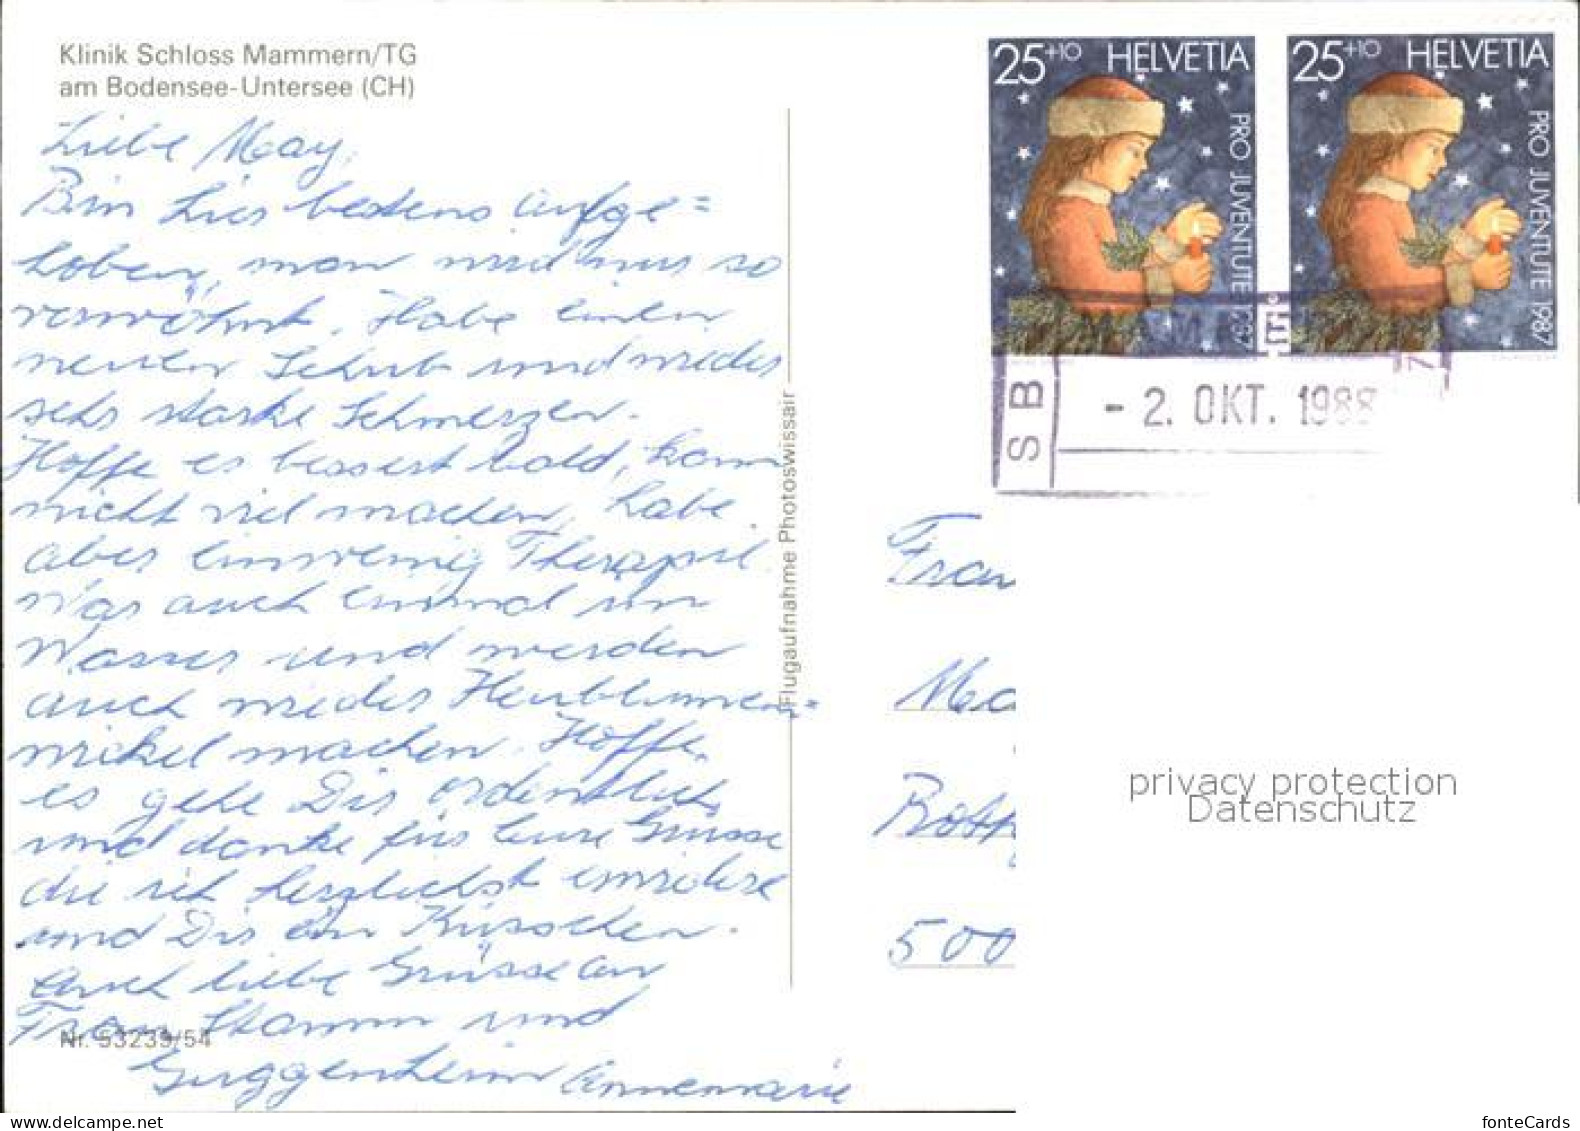 Klinik Schloss Mammern/TG
am Bodensee-Untersee (CH)
Liebe May,
Bin hier bestens aufge=
hoben, man wird nur so
verwöhnt. Habe einen
neuen Schub und wieder
sehr starke Schmerzen.
Hoffe es bessert bald, kann
nicht viel machen, habe
aber einwenig Therapie.
War auch einmal im
Wasser und werden
auch wieder Heublumen=
wickel machen. Hoffe,
es gehe Dir ordentlich
und danke für Eure Grüsse
die ich herzlichst erwidere
und Dir ein Küsschen.
Auch liebe Grüsse an
Frau Stamm und
Guggenheim Annemarie
Nr. 53239/54
Flugaufnahme Photoswissair
25+10 HELVETIA
PRO JUVENTUTE 1987
25+10 HELVETIA
PRO JUVENTUTE 1987
SB
- 2. OKT. 1988
Frau
Ma
500
privacy protection
Datenschutz
fonteCards